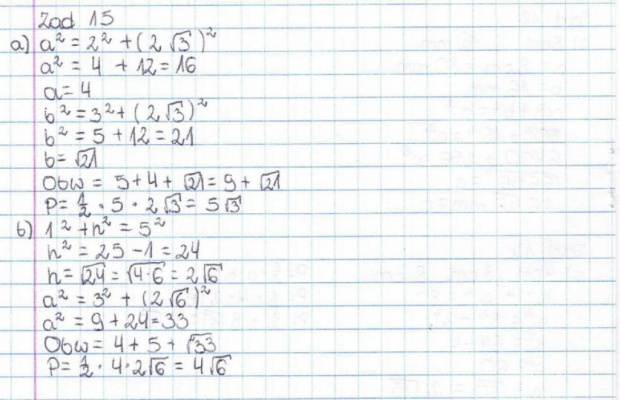 Zad 15
a) a² = 2² + (2√3)²
a² = 4 + 12 = 16
a = 4
b² = 3² + (2√3)²
b² = 5 + 12 = 21
b = √21
Obw = 5 + 4 + √21 = 9 + √21
P = ½ · 5 · 2√3 = 5√3
b) 1² + h² = 5²
h² = 25 - 1 = 24
h = √24 = √4·6 = 2√6
a² = 3² + (2√6)²
a² = 9 + 24 = 33
Obw = 4 + 5 + √33
P = ½ · 4 · 2√6 = 4√6